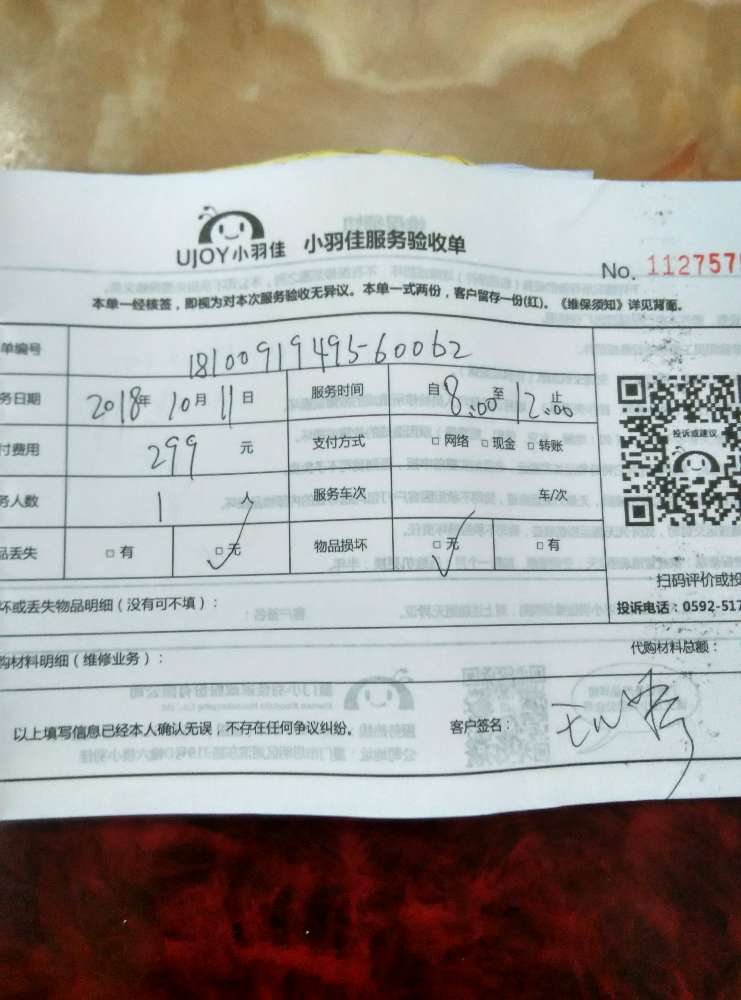 UJOY小羽佳 小羽佳服务验收单
No. 1127575
本单一经核签，即视为对本次服务验收无异议。本单一式两份，客户留存一份(红)。《维保须知》详见背面。
单编号 18100919495-60062
务日期 2018年10月11日 服务时间 自8:00至12:00止
付费用 299元 支付方式 □网络 □现金 □转账
务人数 1人 服务车次 车/次
品丢失 □有 □无 物品损坏 □无 □有
投诉或建议
扫码评价或投
坏或丢失物品明细（没有可不填）：
投诉电话：0592-517
购材料明细（维修业务）： 代购材料总额：
以上填写信息已经本人确认无误，不存在任何争议纠纷。 客户签名：